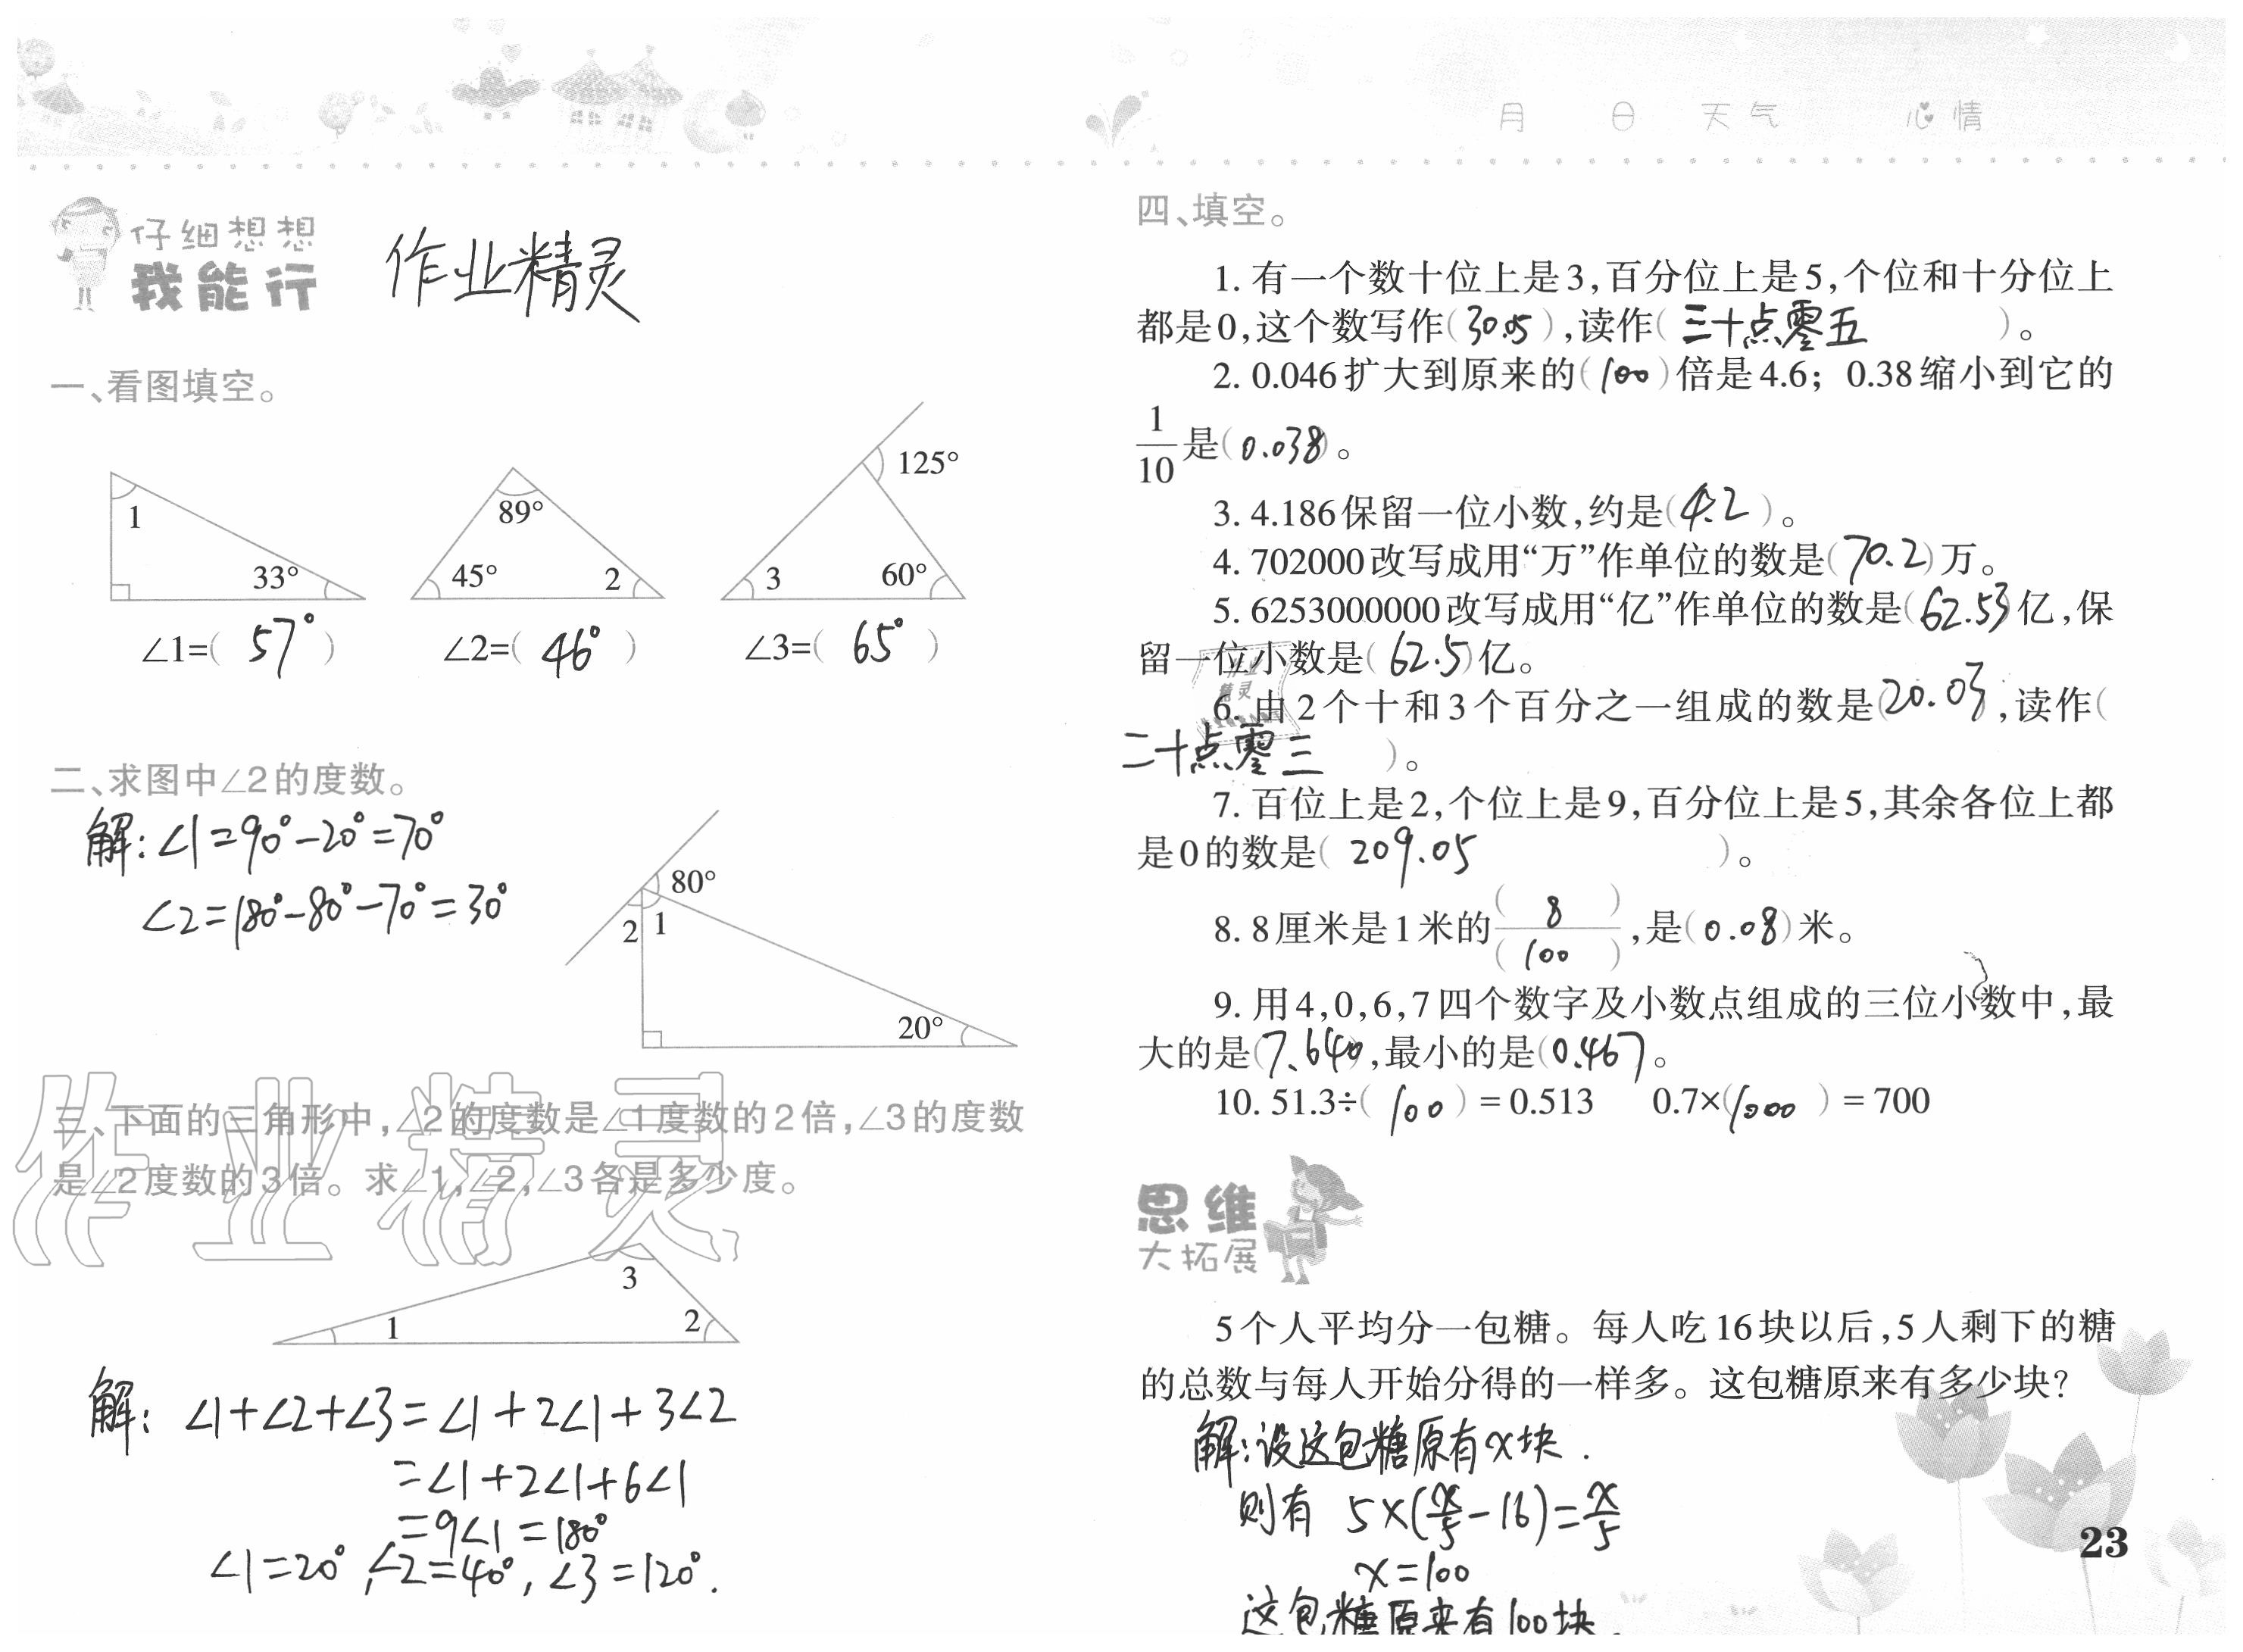 月 日 天气 心情
仔细想想
我能行
作业精灵
一、看图填空。
1 33°
89° 45° 2
125° 3 60°
∠1=( 57° ) ∠2=( 46° ) ∠3=( 65° )
二、求图中∠2的度数。
解:∠1=90°-20°=70°
∠2=180°-80°-70°=30°
80°
2 1
20°
三、下面的三角形中,∠2的度数是∠1度数的2倍,∠3的度数
是∠2度数的3倍。求∠1,∠2,∠3各是多少度。
作业精灵
3
1 2
解: ∠1+∠2+∠3=∠1+2∠1+3∠2
=∠1+2∠1+6∠1
=9∠1=180°
∠1=20°,∠2=40°,∠3=120°.
四、填空。
1. 有一个数十位上是3,百分位上是5,个位和十分位上
都是0,这个数写作(30.05),读作( 三十点零五 )。
2. 0.046扩大到原来的(100)倍是4.6; 0.38缩小到它的
1/10是(0.038)。
3. 4.186保留一位小数,约是(4.2)。
4. 702000改写成用“万”作单位的数是(70.2)万。
5. 6253000000改写成用“亿”作单位的数是(62.53)亿,保
留一位小数是(62.5)亿。
作业
精灵
6. 由2个十和3个百分之一组成的数是(20.03),读作(
二十点零三 )。
7. 百位上是2,个位上是9,百分位上是5,其余各位上都
是0的数是( 209.05 )。
8. 8厘米是1米的( 8 )/( 100 ),是(0.08)米。
9. 用4,0,6,7四个数字及小数点组成的三位小数中,最
大的是(7.640),最小的是(0.467)。
10. 51.3÷( 100 )=0.513 0.7×(1000)=700
思维
大拓展
5个人平均分一包糖。每人吃16块以后,5人剩下的糖
的总数与每人开始分得的一样多。这包糖原来有多少块?
解:设这包糖原有x块.
则有 5×(x/5-16)=x/5
x=100
这包糖原来有100块.
23